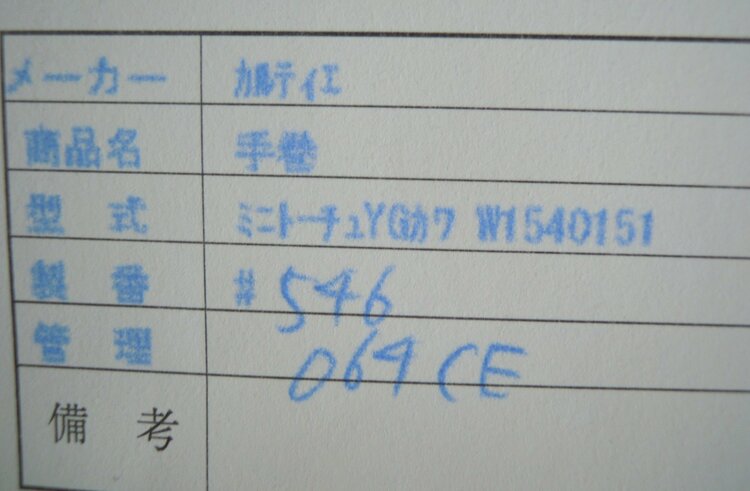 メーカー カルティエ
商品名 手巻
型式 ミニトーチュYGカワ W1540151
製番 # 546
管理 064CE
備考